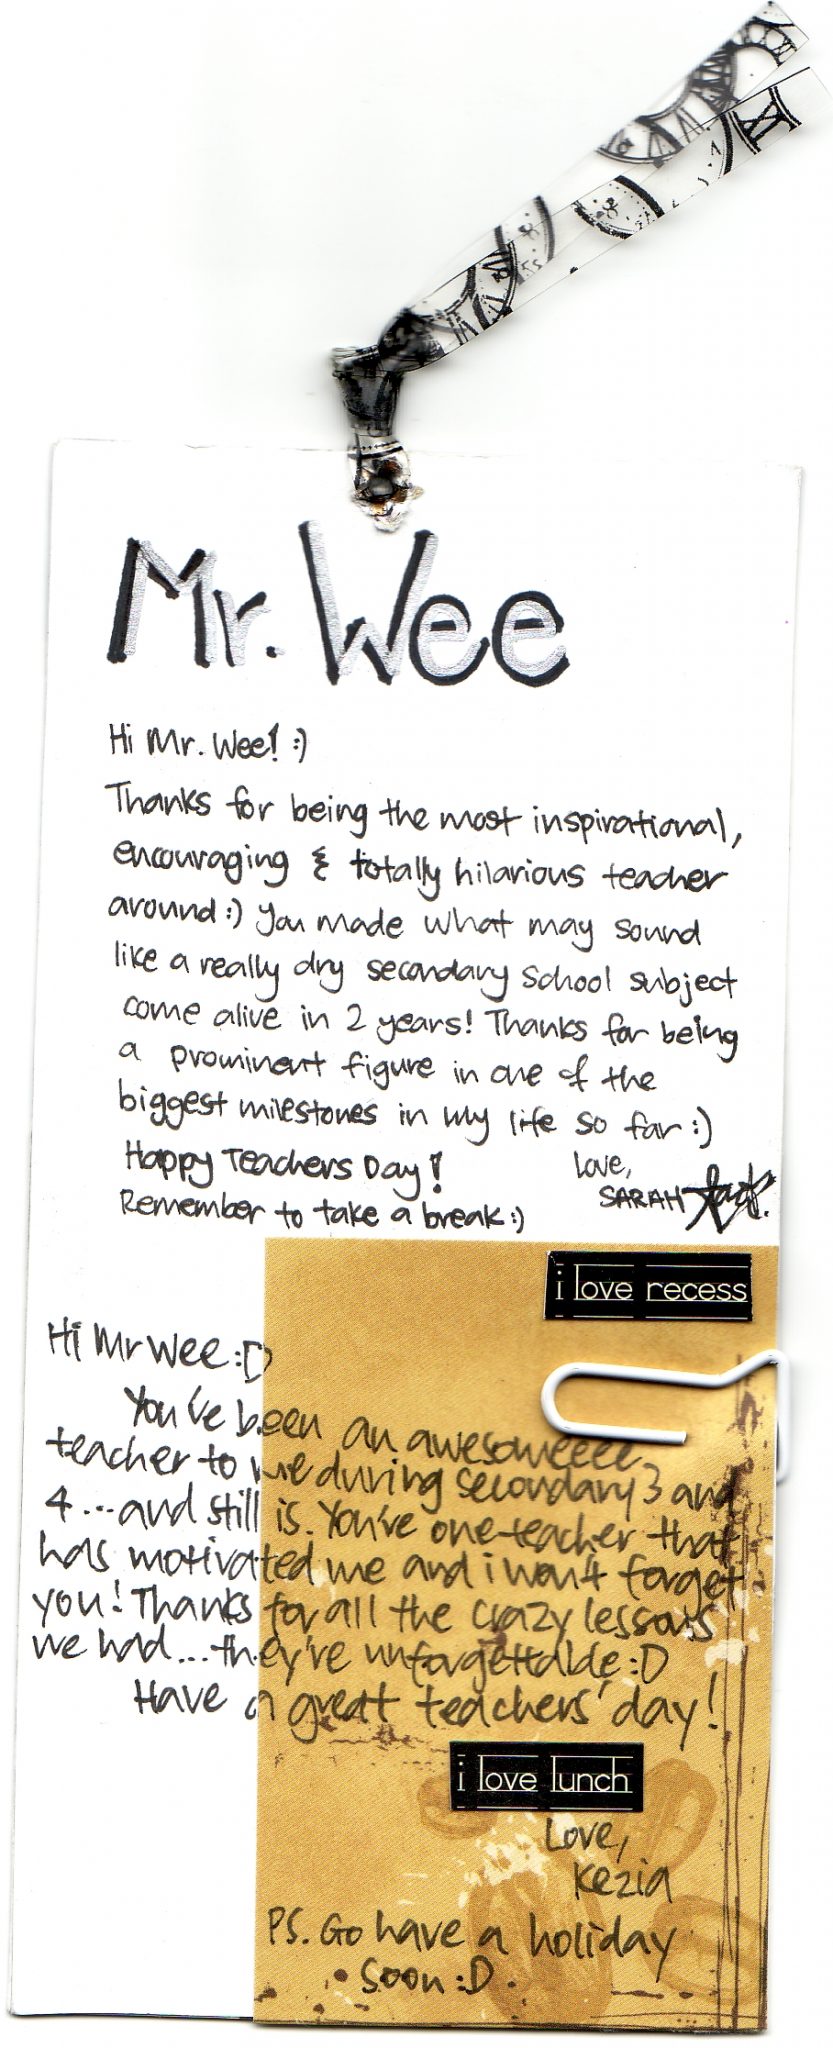 Mr. Wee
Hi Mr. Wee! :)
Thanks for being the most inspirational,
encouraging & totally hilarious teacher
around :) You made what may sound
like a really dry secondary school subject
come alive in 2 years! Thanks for being
a prominent figure in one of the
biggest milestones in my life so far :)
Happy Teachers Day!
Love,
Remember to take a break :)
SARAH
i love recess
Hi Mr Wee :D
You've been an awesomeeeee
teacher to me during secondary 3 and
4...and still is. You've one teacher that
has motivated me and i won't forget
you! Thanks for all the crazy lessons
we had...they're unforgettable :D
Have a great teachers' day!
i love lunch
Love,
Kezia
PS. Go have a holiday
soon :D